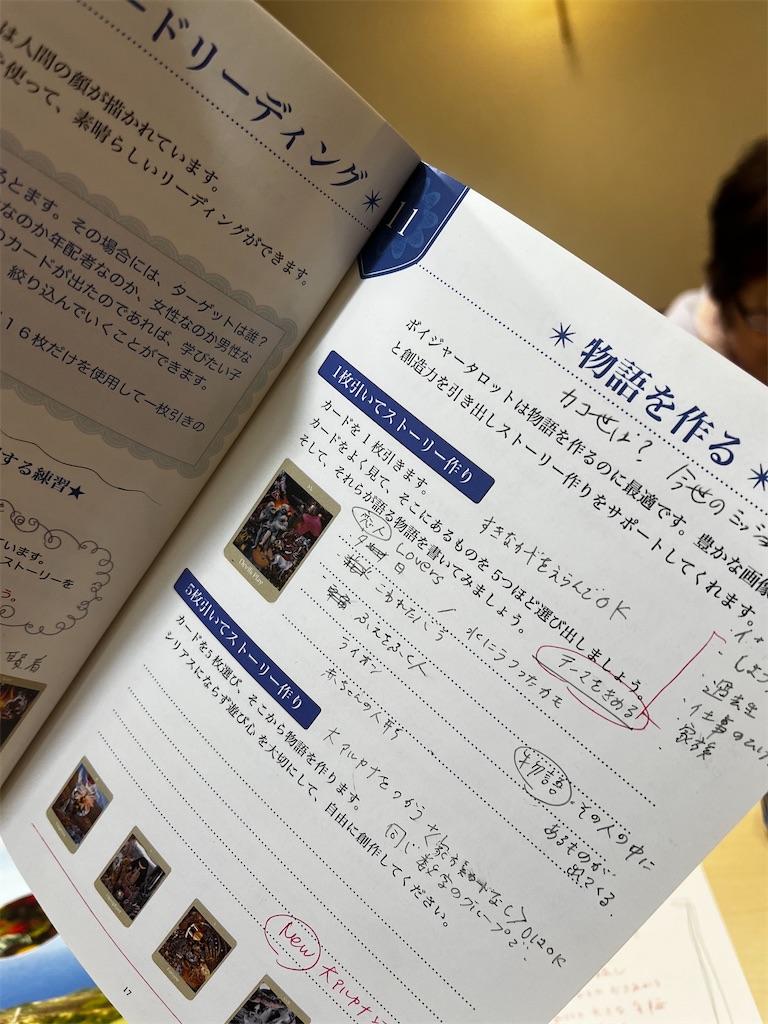 ードリーディング
は人間の顔が描かれています。
使って、素晴らしいリーディングができます。
るとます。その場合には、ターゲットは誰?
なのか年配者なのか、女性なのか男性な
のカードが出たのであれば、学びたい子
絞り込んでいくことができます。
１６枚だけを使用して一枚引きの
する練習★
ています。
ストーリーを
11
物語を作る
カコ世は?
今世のミッシ
ボイジャータロットは物語を作るのに最適です。豊かな画像
と創造力を引き出しストーリー作りをサポートしてくれます。
1枚引いてストーリー作り
カードを1枚引きます。
カードをよく見て、そこにあるものを5つほど選び出しましょう。
そして、それらが語る物語を書いてみましょう。
すきなカードをえらんでOK
恋人
Lovers
こわれたバラ
水にうつった
ふえをふく人
ライオン
赤ちゃんの人形
テーマをきめる
過去生
仕事の
家族
Devil's Play
5枚引いてストーリー作り
カードを5枚選び、そこから物語を作ります。
シリアスにならず遊び心を大切にして、自由に創作してください。
大アルカナをつかう
同じ数字のグループ
OK
物語
その人の中に
あるものが
出てくる
New
大アルカナ
17